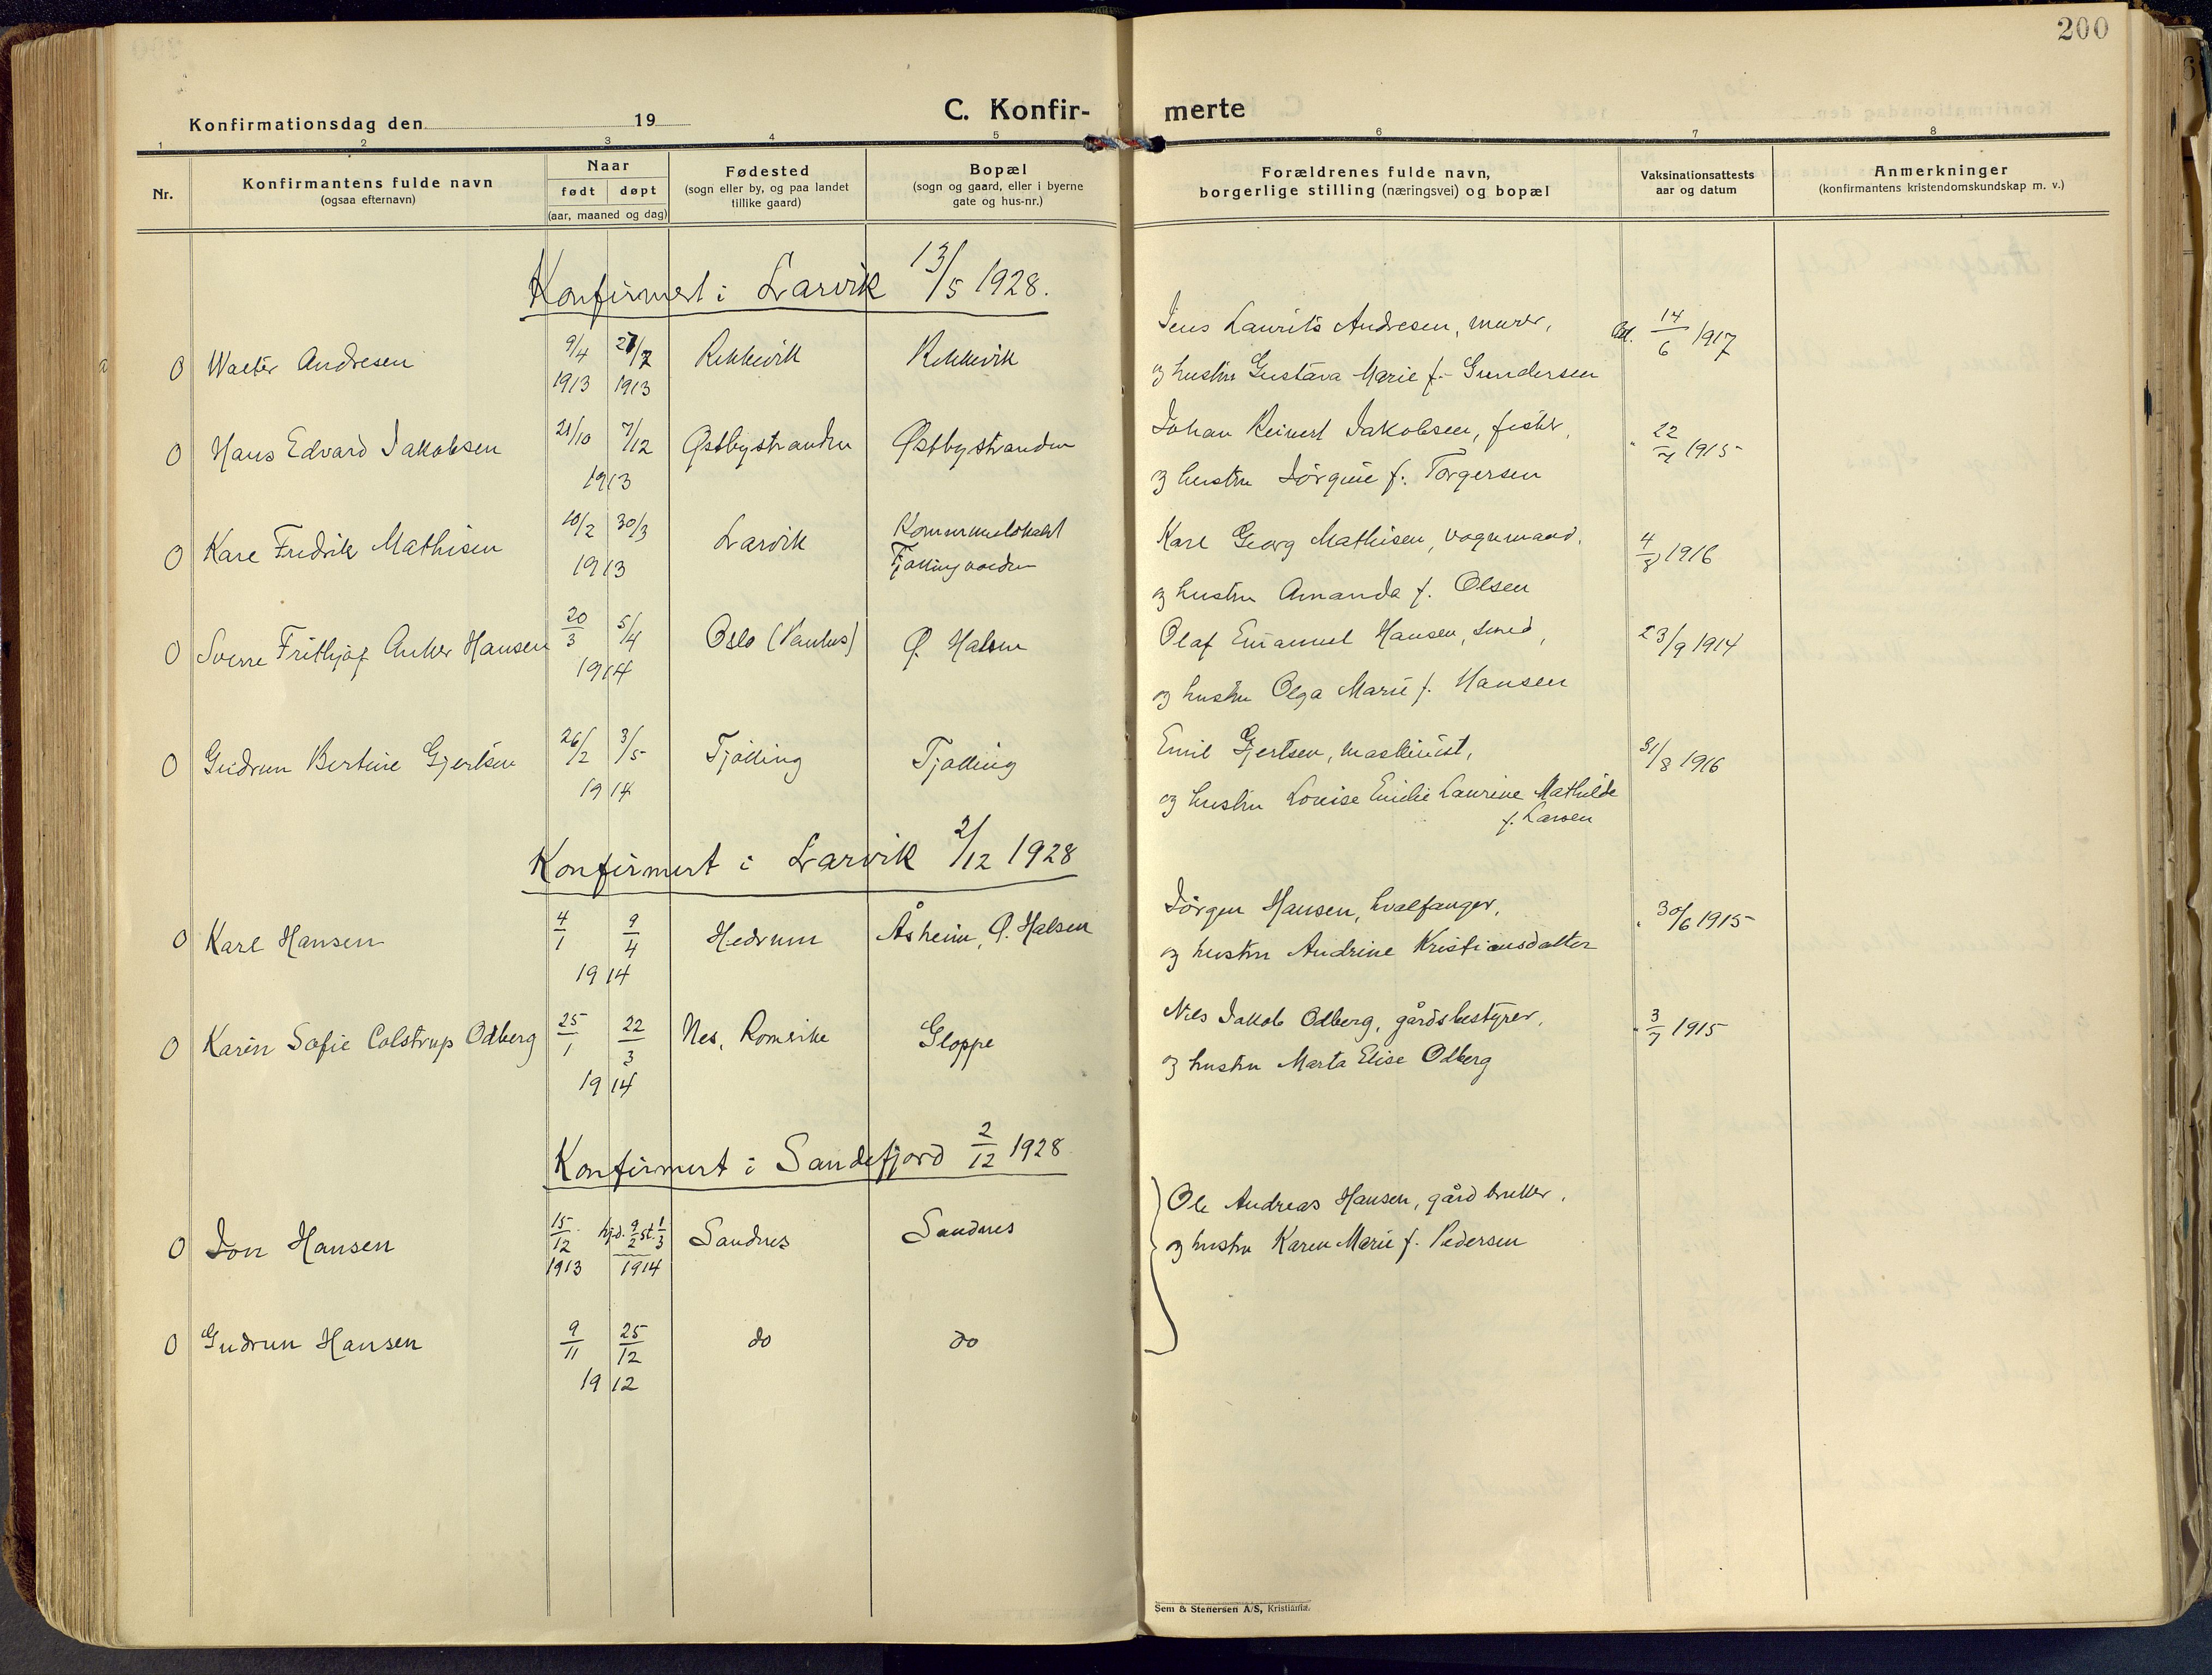 200
Konfirmationsdag den 19
C. Konfir- merte
1 2 3 4 5 6 7 8
Nr.
Konfirmantens fulde navn
(ogsaa efternavn)
Naar
født døpt
(aar, maaned og dag)
Fødested
(sogn eller by, og paa landet
tillike gaard)
Bopæl
(sogn og gaard, eller i byerne
gate og hus-nr.)
Forældrenes fulde navn,
borgerlige stilling (næringsvei) og bopæl
Vaksinationsattests
aar og datum
Anmerkninger
(konfirmantens kristendomskundskap m. v.)
Konfirmert i Larvik 13/5 1928.
0 Walter Andresen 9/4 1913 27/7 1913 Rekkevik Rekkevik
Jens Laurits Andresen, murer,
og hustru Gustava Marie f. Gundersen
14/6 1917
0 Hans Edvard Jakobsen 21/10 7/12 1913 Østbystranden Østbystranden
Johan Reinert Jakobsen, fisker,
og hustru Jørgine f. Torgersen
" 22/7 1915
0 Kare Fredrik Mathisen 10/2 30/3 1913 Larvik Kommunelokalet
Tjøllingvolden
Karl Georg Mathisen, vognmand,
og hustru Amanda f. Olsen
4/8 1916
0 Sverre Frithjof Anker Hansen 20/3 5/4 1914 Oslo (Paulus) Ø. Halsen
Olaf Emanuel Hansen, smed,
og hustru Olga Marie f. Hansen
23/9 1914
0 Gudrun Bertine Gjertsen 26/2 3/5 1914 Tjølling Tjølling
Emil Gjertsen, maskinist,
og hustru Lovise Emilie Laurine Mathilde
f. Larsen
31/8 1916
Konfirmert i Larvik 2/12 1928
0 Karl Hansen 4/1 9/4 1914 Hedrum Åsheim, Ø. Halsen
Jørgen Hansen, hvalfanger,
og hustru Andrine Kristiansdatter
" 30/6 1915
0 Karin Sofie Colstrup Odberg 25/1 22/3 1914 Nes, Romerike Gloppe
Nils Jakob Odberg, gårdsbestyrer,
og hustru Marta Elise Odberg
" 3/7 1915
Konfirmert i Sandefjord 2/12 1928
0 Jon Hansen 15/12 1913 hjd. 9/2 st. 1/3 1914 Sandnes Sandnes
Ole Andreas Hansen, gårdbruker,
og hustru Karen Marie f. Pedersen
0 Gudrun Hansen 9/11 25/12 1912 do do
Sem & Stenersen A/S, Kristiania.